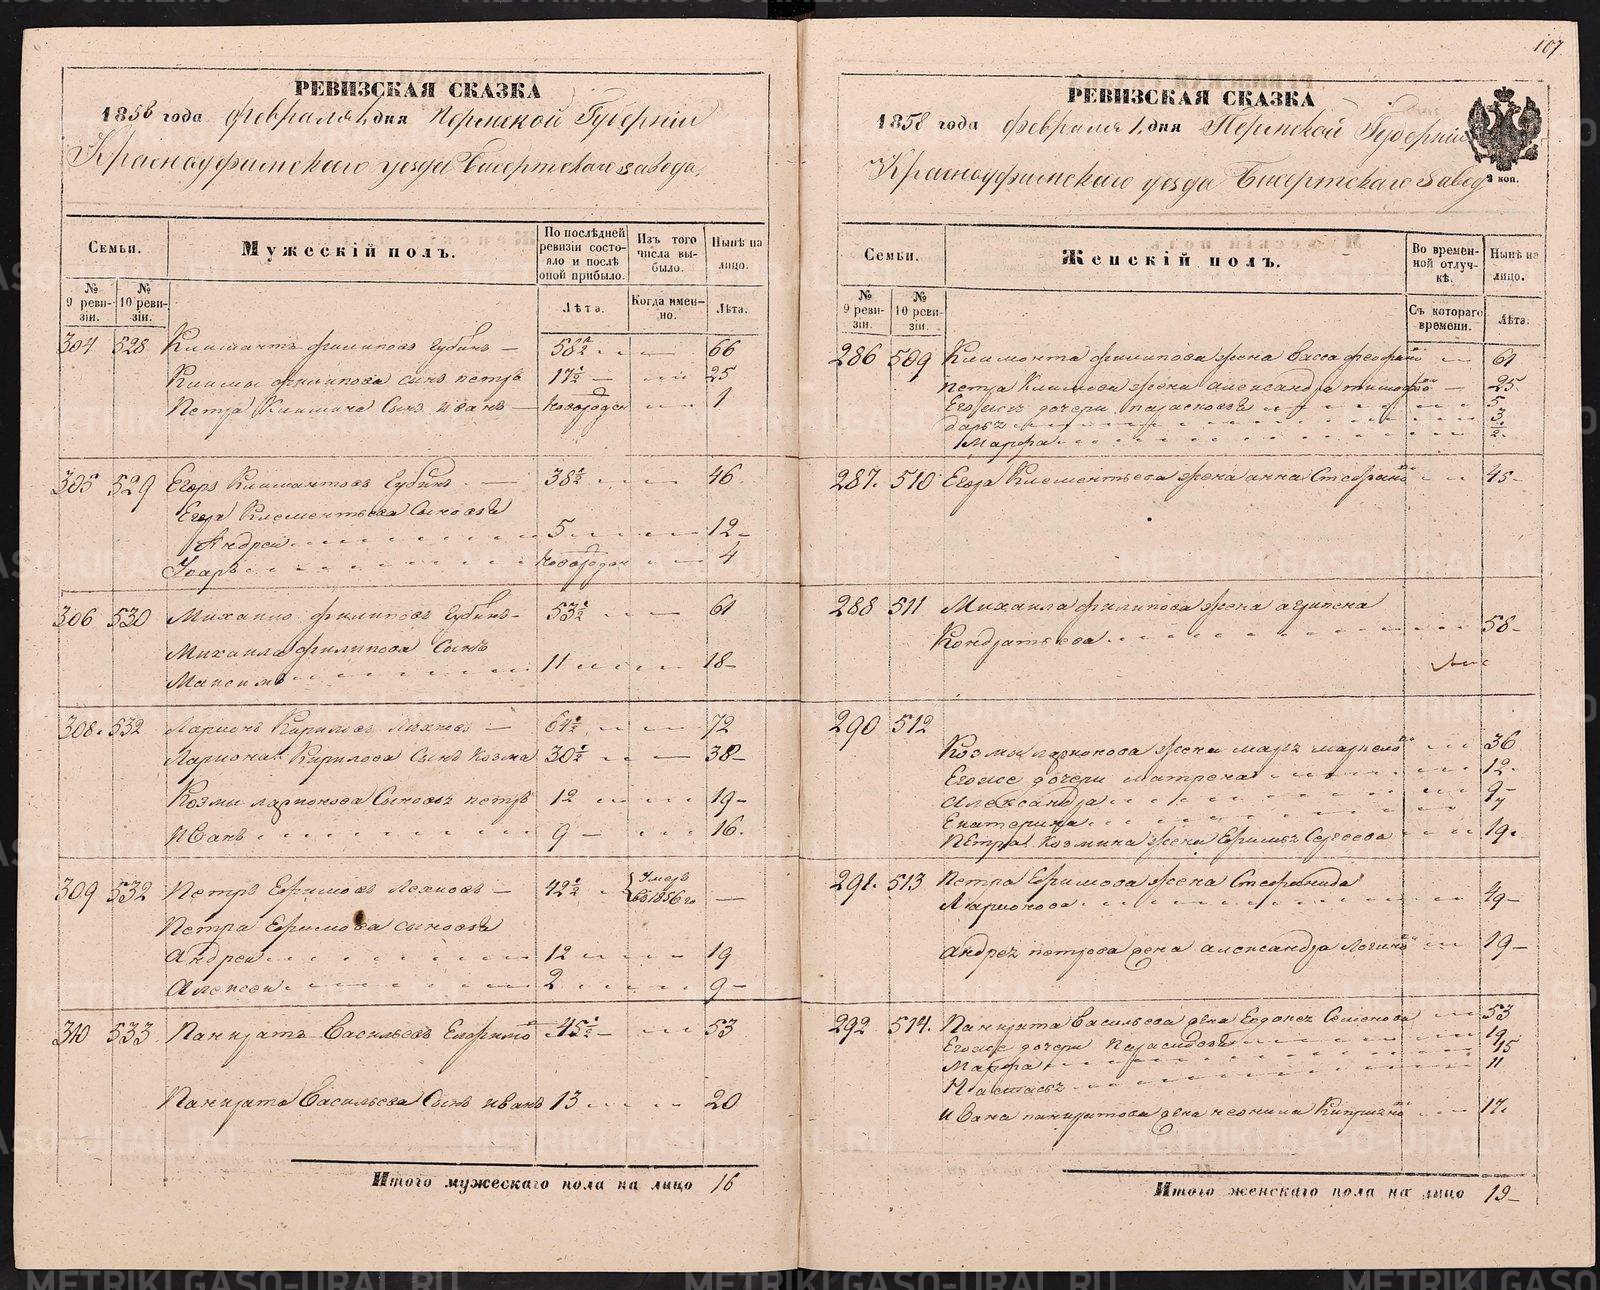 107.
РЕВИЗСКАЯ СКАЗКА
1858 года Февраля 1 дня Пермской Губернии
Красноуфимскаго уезда Бисертскаго завода.
Семьи.
Мужескій полъ.
По послѣдней ревизіи состояло и послѣ оной прибыло.
Изъ того числа выбыло.
Нынѣ на лицо.
№ 9 ревизіи.
№ 10 ревизіи.
Лѣта.
Когда именно.
Лѣта.
304 528 Климантъ Филиповъ Губинъ 58½ 66
Климы Филипова сынъ Петръ 17½ 25
Петра Климича Сынъ Иванъ новорожден 1
305 529 Егоръ Климантовъ Губинъ 38½ 46
Егора Клементьева Сыновья
Андрей 5 12
новорожден 4
306 530 Михаило Филиповъ Губинъ 53½ 61
Михаила Филипова Сынъ
Максимъ 11 18
308. 532 Ларионъ Кириловъ 64½ 72
Лариона Кирилова Сынъ Козма 30½ 38
Козмы Ларионова Сыновья Петръ 12 19
Иванъ 9 16.
309 532 Петръ Ефимовъ 42½ Умеръ въ 1856 го
Петра Ефимова сыновья
Андрей 12 19
Алексей 2 9
310 533 Панкратъ Васильевъ 45½ 53
Панкрата Васильева Сынъ Иванъ 13 20
Итого мужескаго пола на лицо 16
РЕВИЗСКАЯ СКАЗКА
1858 года Февраля 1 дня Пермской Губерніи
Красноуфимскаго уезда Бисертскаго завод
2 коп.
Семьи.
Женскій полъ.
Во временной отлучкѣ.
Нынѣ на лицо.
№ 9 ревизіи.
№ 10 ревизіи.
Съ котораго времени.
Лѣта.
286 509 Климонта Филипова жена Васса 61
Петра Климова жена Александра 25
Егожъ дочери Парасковья 5
Дарья 3
Марфа ½
287. 510 Егора Клементьева жена Анна 45
288 511 Михаила Филипова жена Агрипена
Кондратьева 58
290 512
Козмы Ларионова жена Марья 36
Егоже дочери Матрена 12
Александра 9
Екатерина
Петра Козмина жена Ефимья Сергеева 19.
291. 513 Петра Ефимова жена Стефанида
Ларионова 49
Андрея Петрова жена Александра 19
292 514. Панкрата Васильева жена Евдокея Семенова 53
Егоже дочери 19
Марфа 15
Настасья 11
Ивана Панкратова жена Неонила 17.
Итого женскаго пола на лицо 19